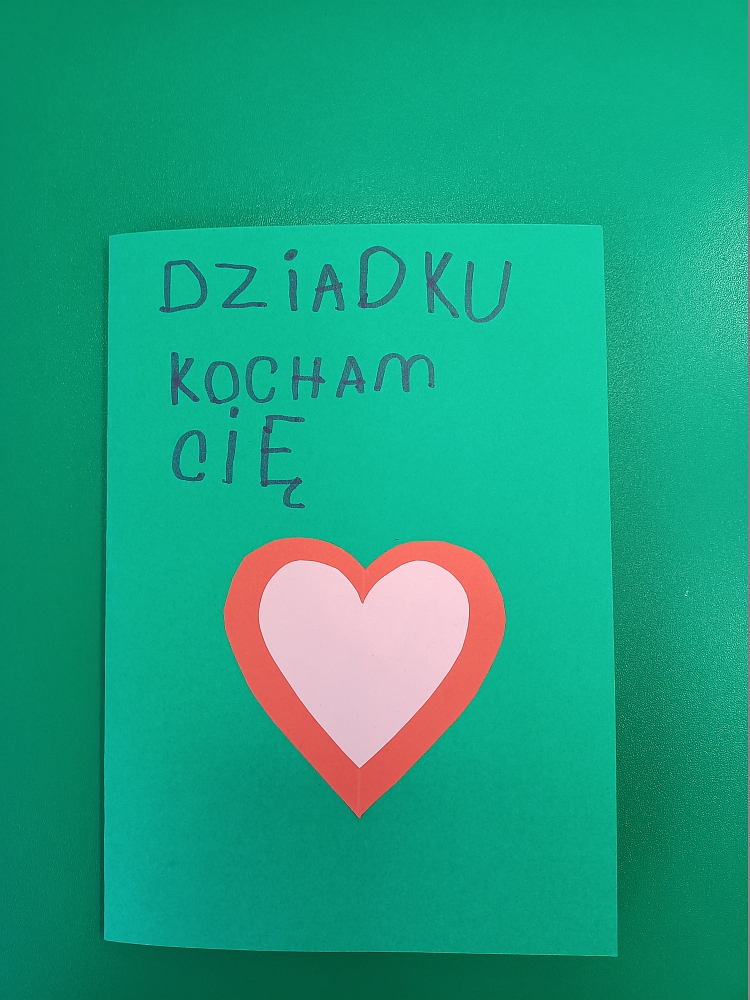 DZiADKU
KOCHAM
CiĘ